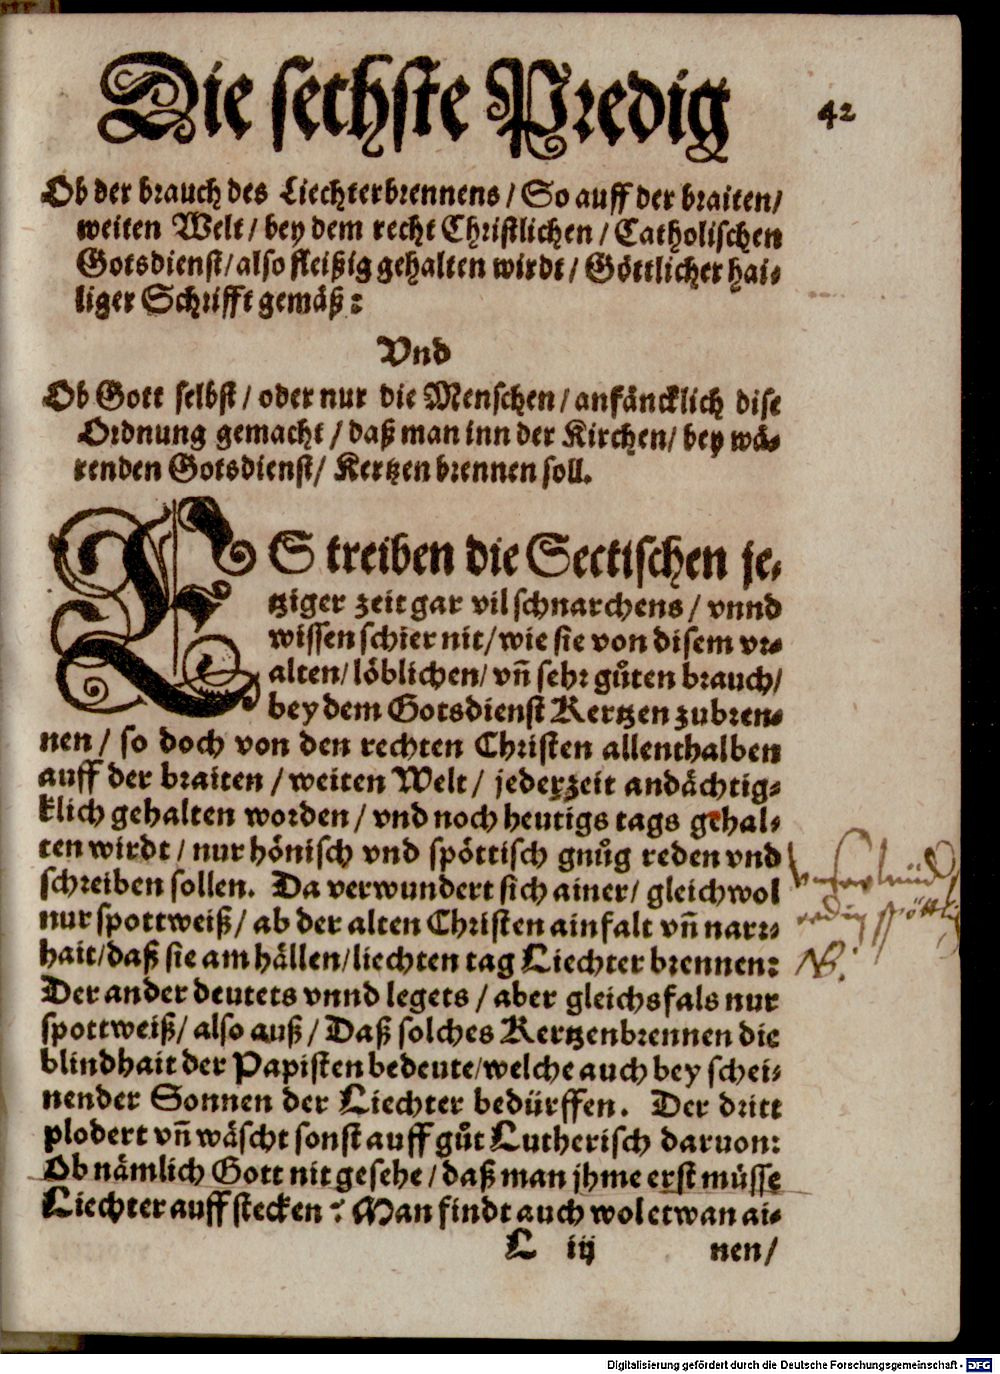 Die sechste Predig
42
Ob der brauch des Liechterbrennens / So auff der braiten /
weiten Welt / bey dem recht Christlichen / Catholischen
Gotsdienst / also fleißig gehalten wirdt / Göttlicher hai⸗
liger Schrifft gemäß:
Vnd
Ob Gott selbst / oder nur die Menschen / anfäncklich dise
Ordnung gemacht / daß man inn der Kirchen / bey wä⸗
renden Gotsdienst / Kertzen brennen soll.
ES treiben die Sectischen je⸗
tziger zeit gar vil schnarchens / vnnd
wissen schier nit / wie sie von disem vr⸗
alten / löblichen / vñ sehr gůten brauch /
bey dem Gotsdienst Kertzen zubren⸗
nen / so doch von den rechten Christen allenthalben
auff der braiten / weiten Welt / jederzeit andächtig⸗
klich gehalten worden / vnd noch heutigs tags gehal⸗
ten wirdt / nur hönisch vnd spöttisch gnůg reden vnd
schreiben sollen. Da verwundert sich ainer / gleichwol
nur spottweiß / ab der alten Christen ainfalt vñ narr⸗
hait / daß sie am hällen / liechten tag Liechter brennen:
Der ander deutets vnnd legets / aber gleichsfals nur
spottweiß / also auß / Daß solches Kertzenbrennen die
blindhait der Papisten bedeute / welche auch bey schei⸗
nender Sonnen der Liechter bedürffen. Der dritt
plodert vñ wäscht sonst auff gůt Lutherisch daruon:
Ob nämlich Gott nit gesehe / daß man jhme erst müsse
Liechter auff stecken? Man findt auch wol etwan ai⸗
L iij nen /
NB.
Digitalisierung gefördert durch die Deutsche Forschungsgemeinschaft - DFG